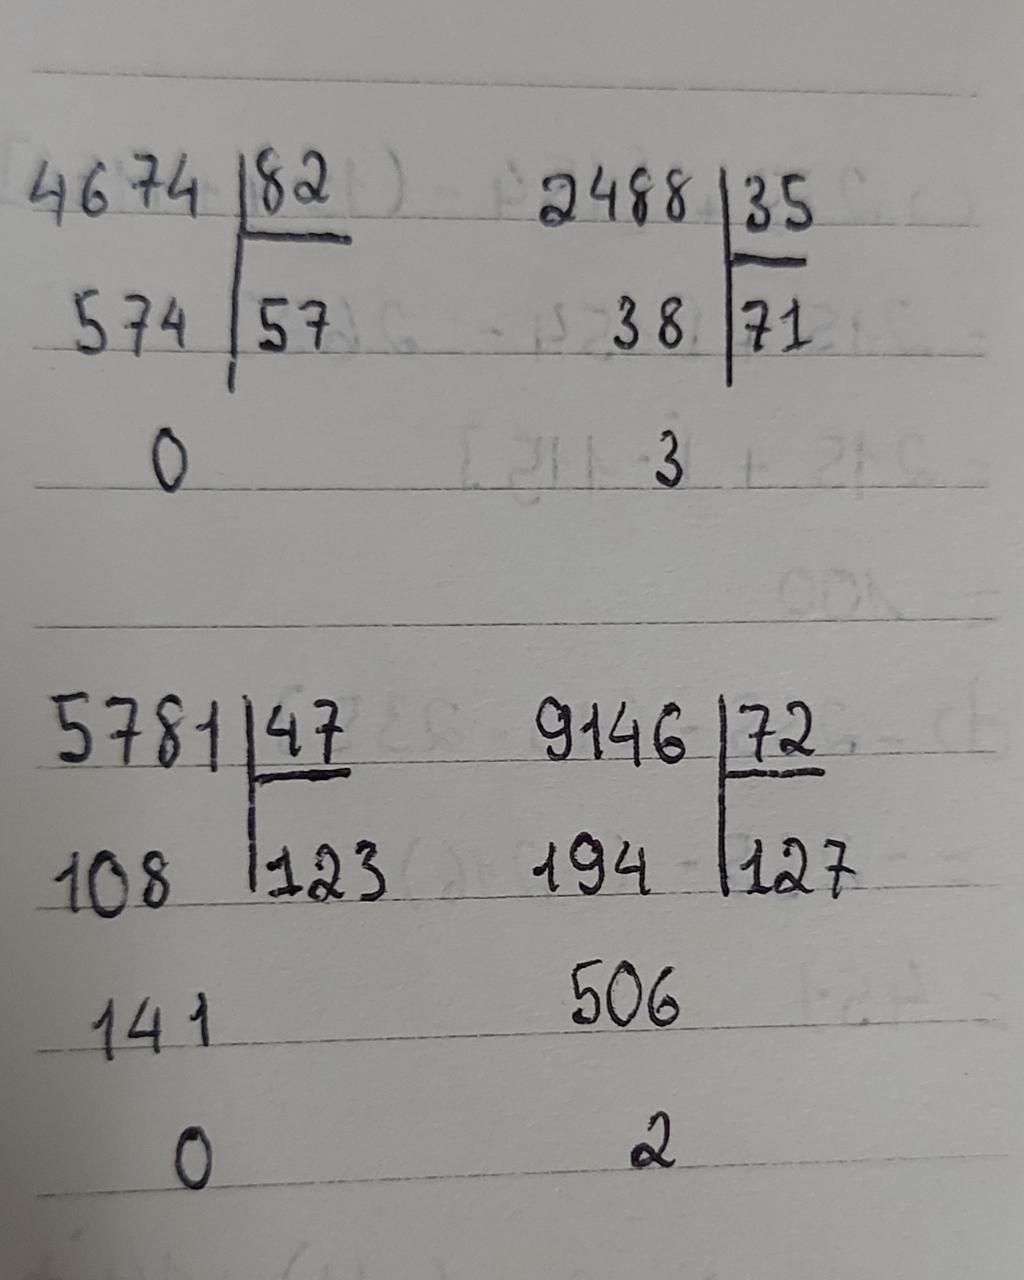 4674 82
574 57
0
2488 35
38 71
3
5781 47
108 123
141
0
9146 72
194 127
506
2